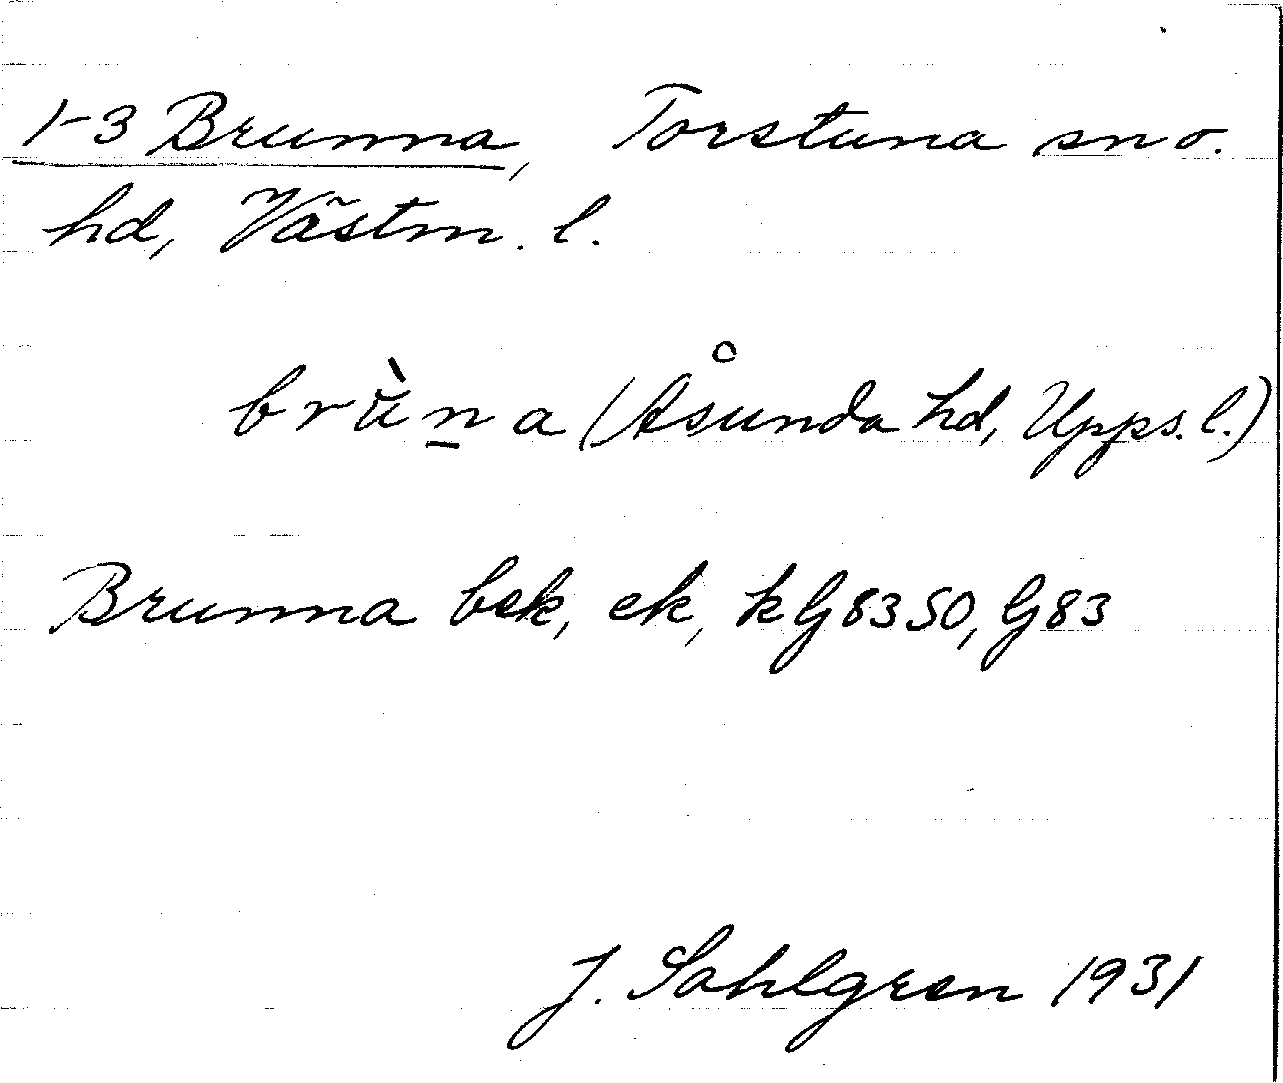 1-3 Brunna, Torstuna sn o.
hd, Västm. l.
brùn̲a (Åsunda hd, Upps. l.)
Brunna bsk, ek, k G83 SO, G83
J. Sahlgren 1931